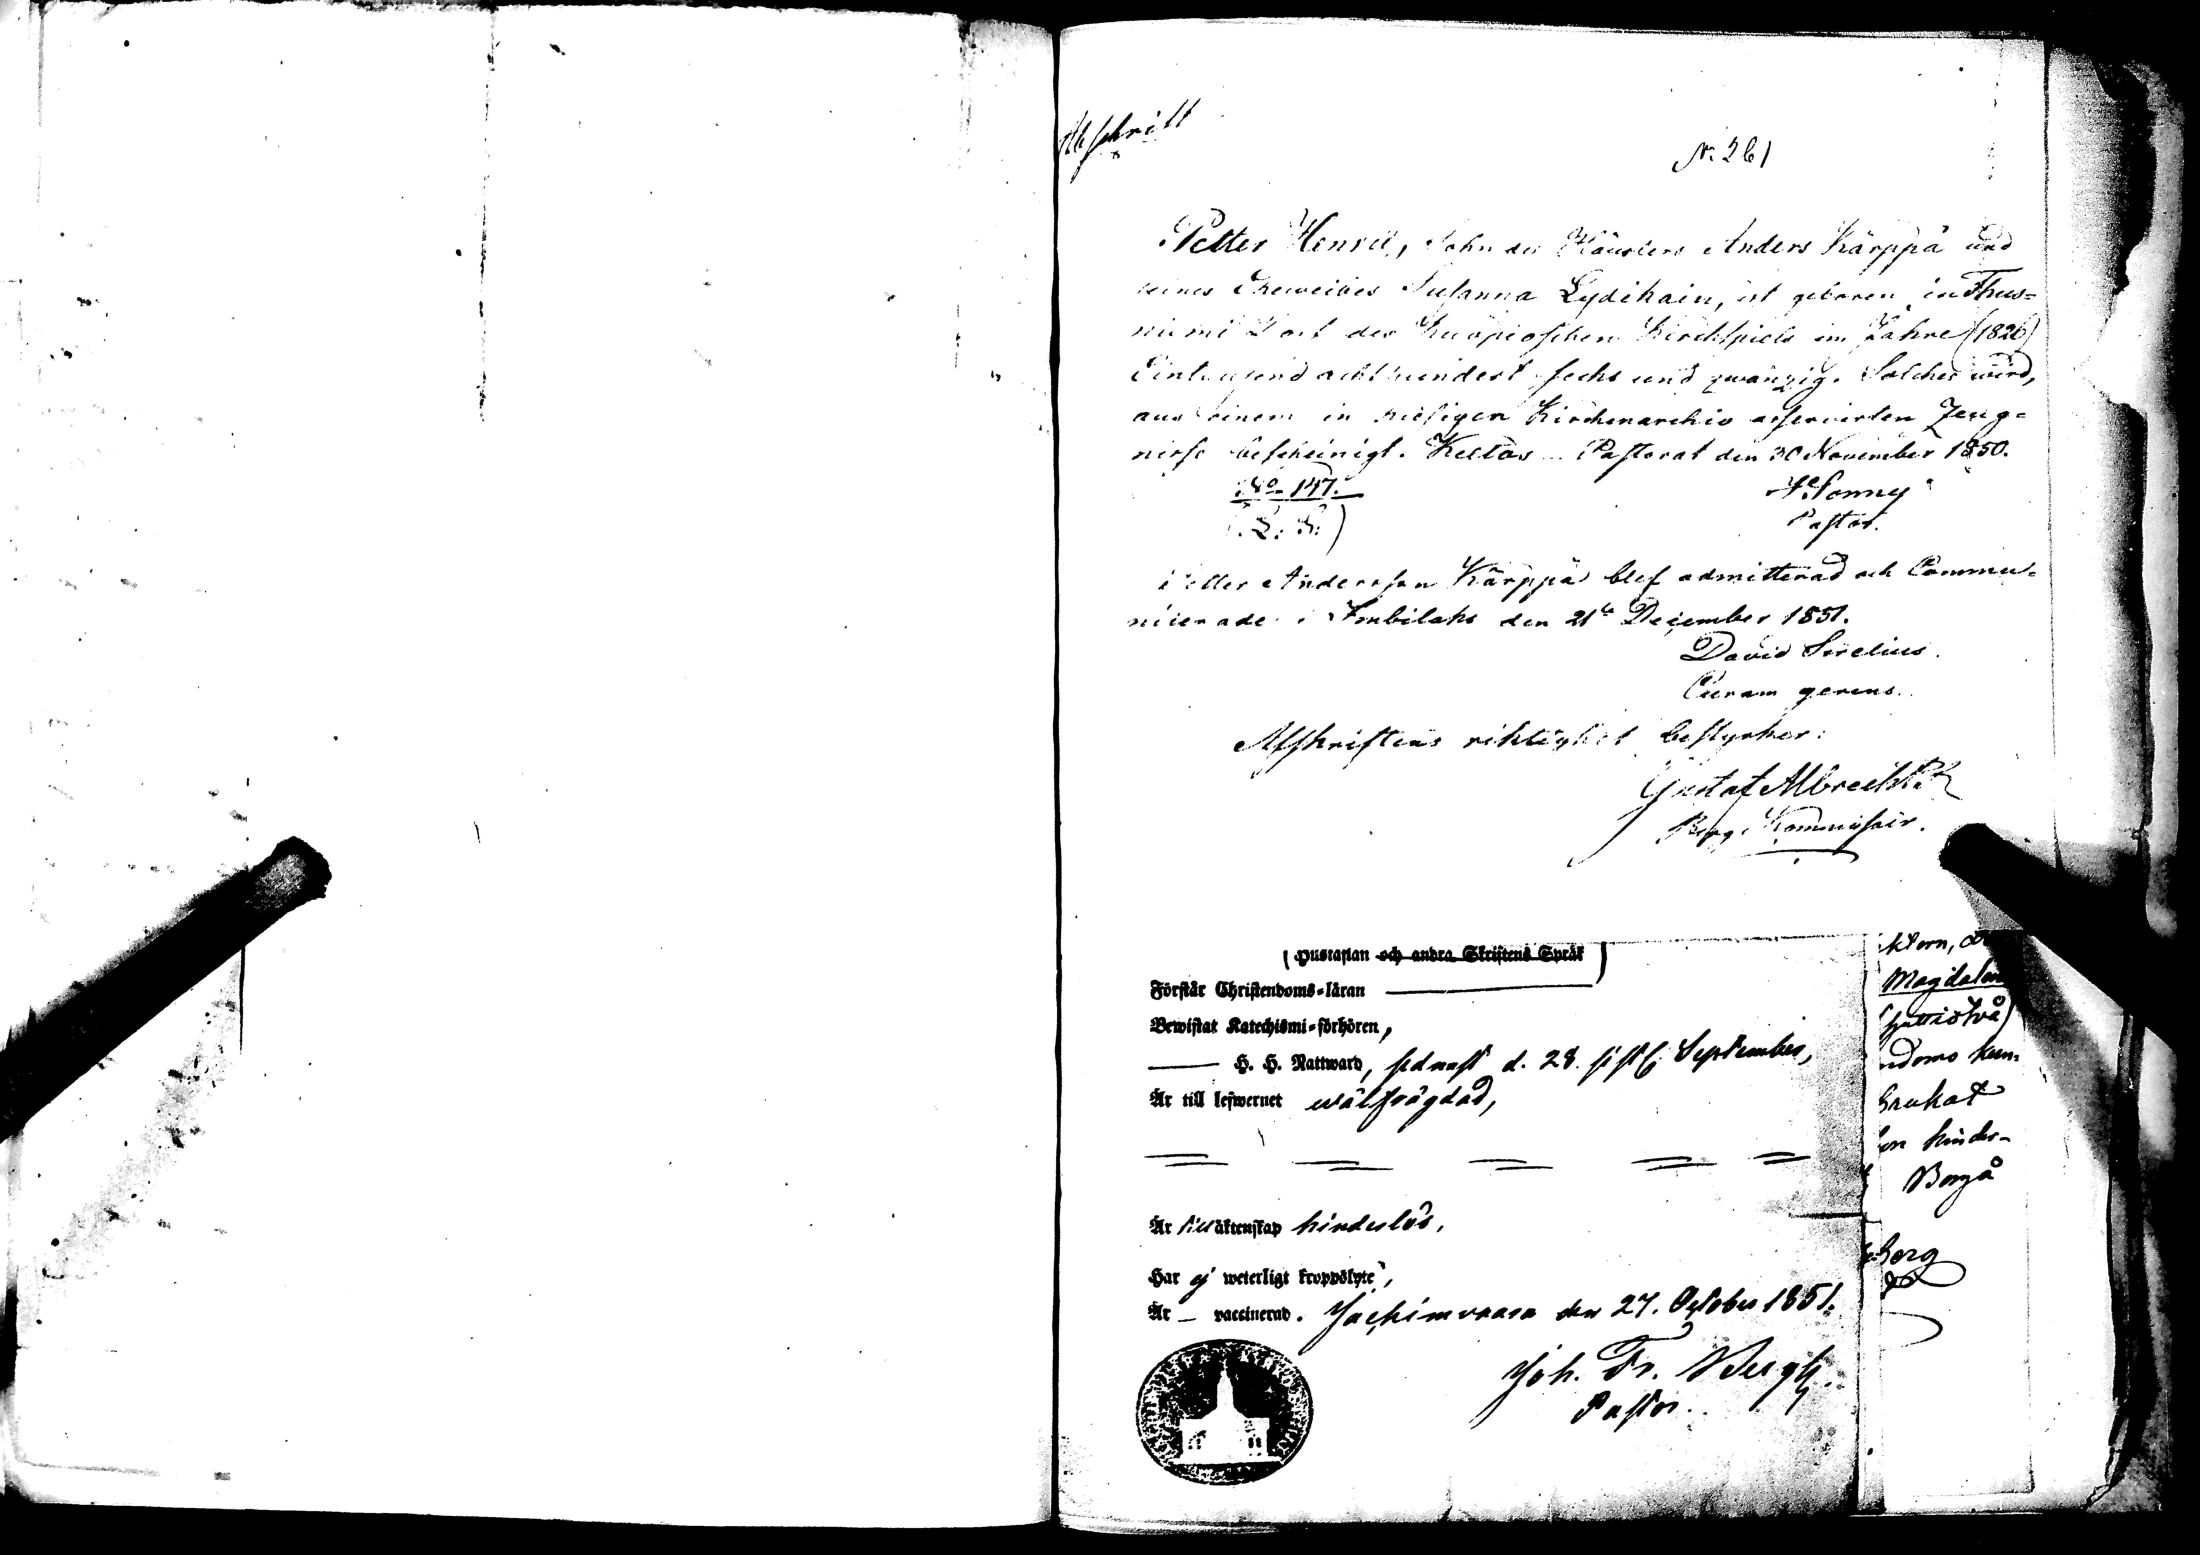 Abschrift
N. 261
Petter Henric, Sohn des Häuslers Anders Kärppä und
seines Eheweibes Susanna Lydikain, ist geboren in Thus-
niemi Dorf des Kuopioschen Kirchspiels im Jahre (1826)
Eintausend achthundert sechs und zwanzig. Solches wird,
aus einem in hiesigen Kirchenarchiv asservirten Zeug-
nisse bescheinigt. Keltos Pastorat den 30 November 1850.
No 147.
(L. S.)
Sonny
Pastor.
Petter Andersson Kärppä blef admitterad och Commu-
nicerade i Imbilaks den 21 December 1851.
David Sirelius.
Curam gerens.
Afskriftens riktighet bestyrker:
Gustaf Albrecht
Berg. Kommissair.
Hustaflan och andra Skriftens Språk
Förstår Christendoms-läran
Bewistat Katechismi-förhören,
H. H. Nattward, sednast d. 28. sistl. September,
Är till lefwernet wälfrägdad,
Är till äktenskap hinderlös,
Har ej weterligt kroppslyte,
Är — vaccinerad. Jochimvaara den 27. October 1851.
Joh. Fr. Bergh.
Pastor.
ktorn,
Magdalen
sjuttiotvå)
ndoms kun-
brukat
on hinder-
Borgå
berg